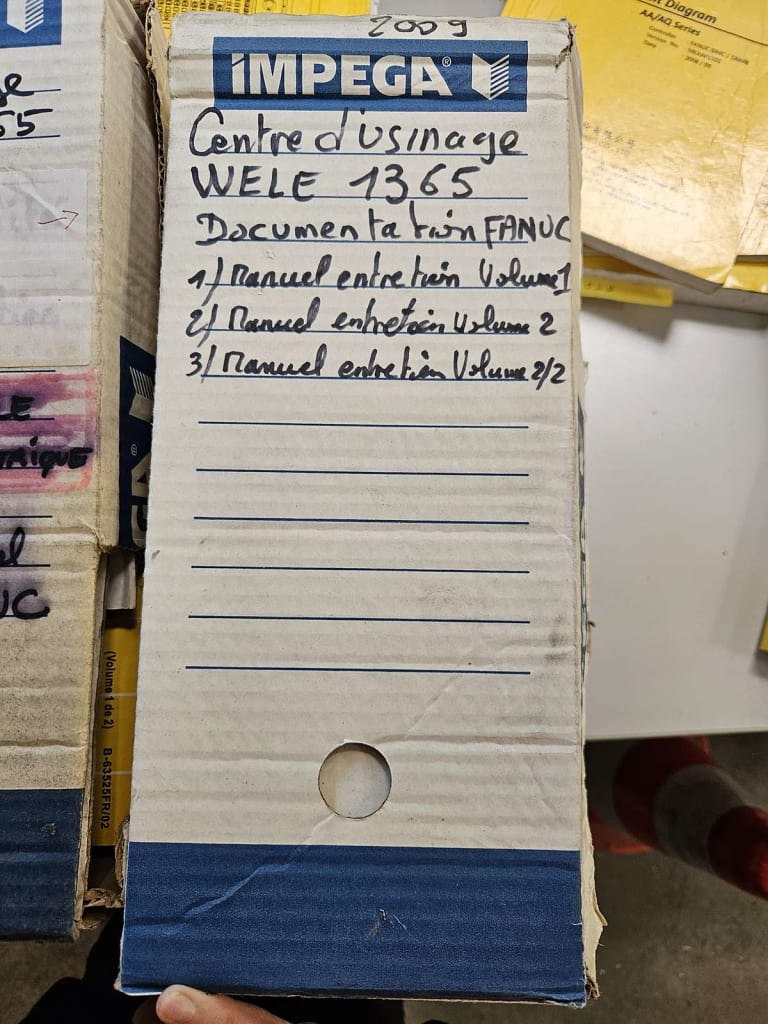 2009
IMPEGA®
Centre d'usinage
WELE 1365
Documentation FANUC
1/ Manuel entretien Volume 1
2/ Manuel entretien Volume 2
3/ Manuel entretien Volume 2/2
55
LE
TRIQUE
el
UC
(Volume 1 de 2) B-63525FR/02
Diagram
AA/AQ Series
Controller
Version No.
Date